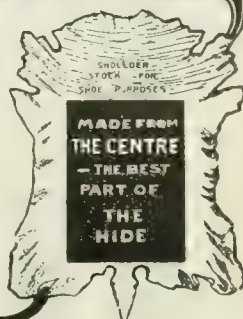 SHOLLDER
STOCK - FOR
SHOE PURPOSES
MADE FROM
THE CENTRE
— THE BEST
PART OF
THE
HIDE